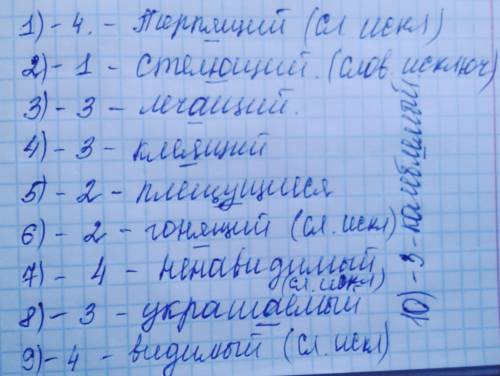 1) - 4. - Терпящий (сл. искл)
2) - 1 - стелющий. (слов. исключ)
3) - 3 - лечащий.
4) - 3 - клеящий
5) - 2 - плещущиеся
6) - 2 - гонящий (сл. искл)
7) - 4 - ненавидимый (сл. искл)
8) - 3 - украшаемый
9) - 4 - видимый (сл. искл)
10) - 3 - колеблемый